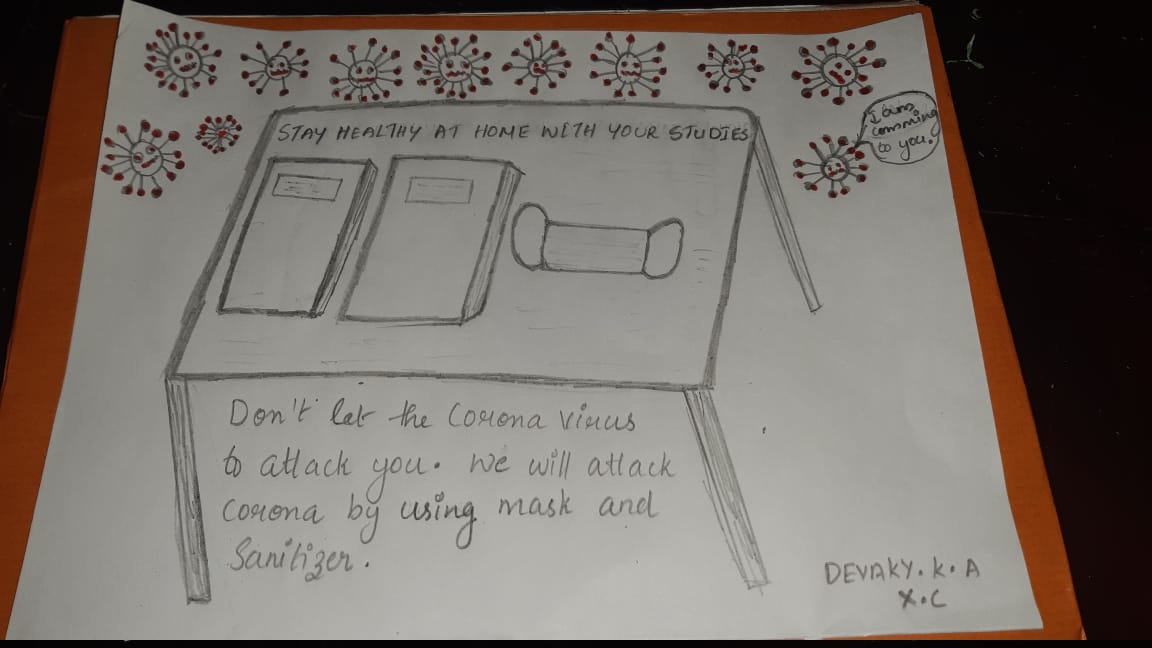 STAY HEALTHY AT HOME WITH YOUR STUDIES
I am
comming
to you.
Don't let the Corona virus
to attack you. We will attack
corona by using mask and
Sanitizer.
DEVAKY.K.A
X.C